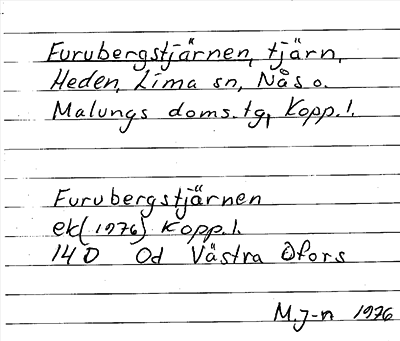 Furubergstjärnen, tjärn,
Heden, Lima sn, Nås o.
Malungs doms.tg, Kopp.l.
Furubergstjärnen
ek(1976) Kopp.l.
14D Od Västra Öfors
M.J-n 1976